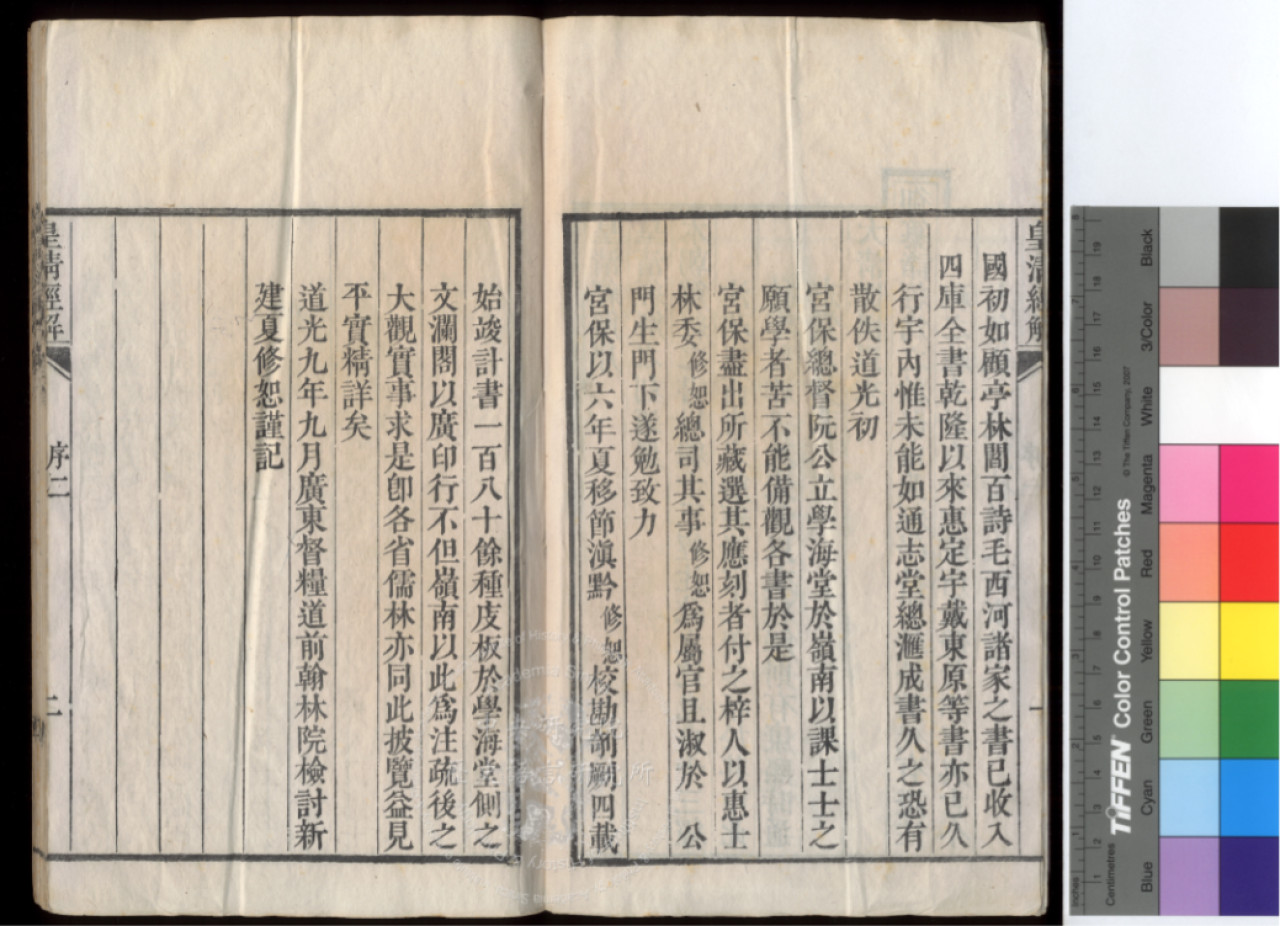 皇清經解
國初如顧亭林閻百詩毛西河諸家之書已收入
四庫全書乾隆以來惠定宇戴東原等書亦已久
行宇內惟未能如通志堂總滙成書久之恐有
散佚道光初
宮保總督阮公立學海堂於嶺南以課士士之
願學者苦不能備觀各書於是
宮保盡出所藏選其應刻者付之梓人以惠士
林委修恕總司其事修恕爲屬官且淑於 公
門生門下遂勉致力
宮保以六年夏移節滇黔修恕校勘剞劂四載
始竣計書一百八十餘種庋板於學海堂側之
文瀾閣以廣印行不但嶺南以此爲注疏後之
大觀實事求是卽各省儒林亦同此披覽益見
平實精詳矣
道光九年九月廣東督糧道前翰林院檢討新
建夏修恕謹記
皇清經解
序二
二
Inches
Centimetres
TIFFEN Color Control Patches
© The Tiffen Company, 2007
Blue
Cyan
Green
Yellow
Red
Magenta
White
3/Color
Black